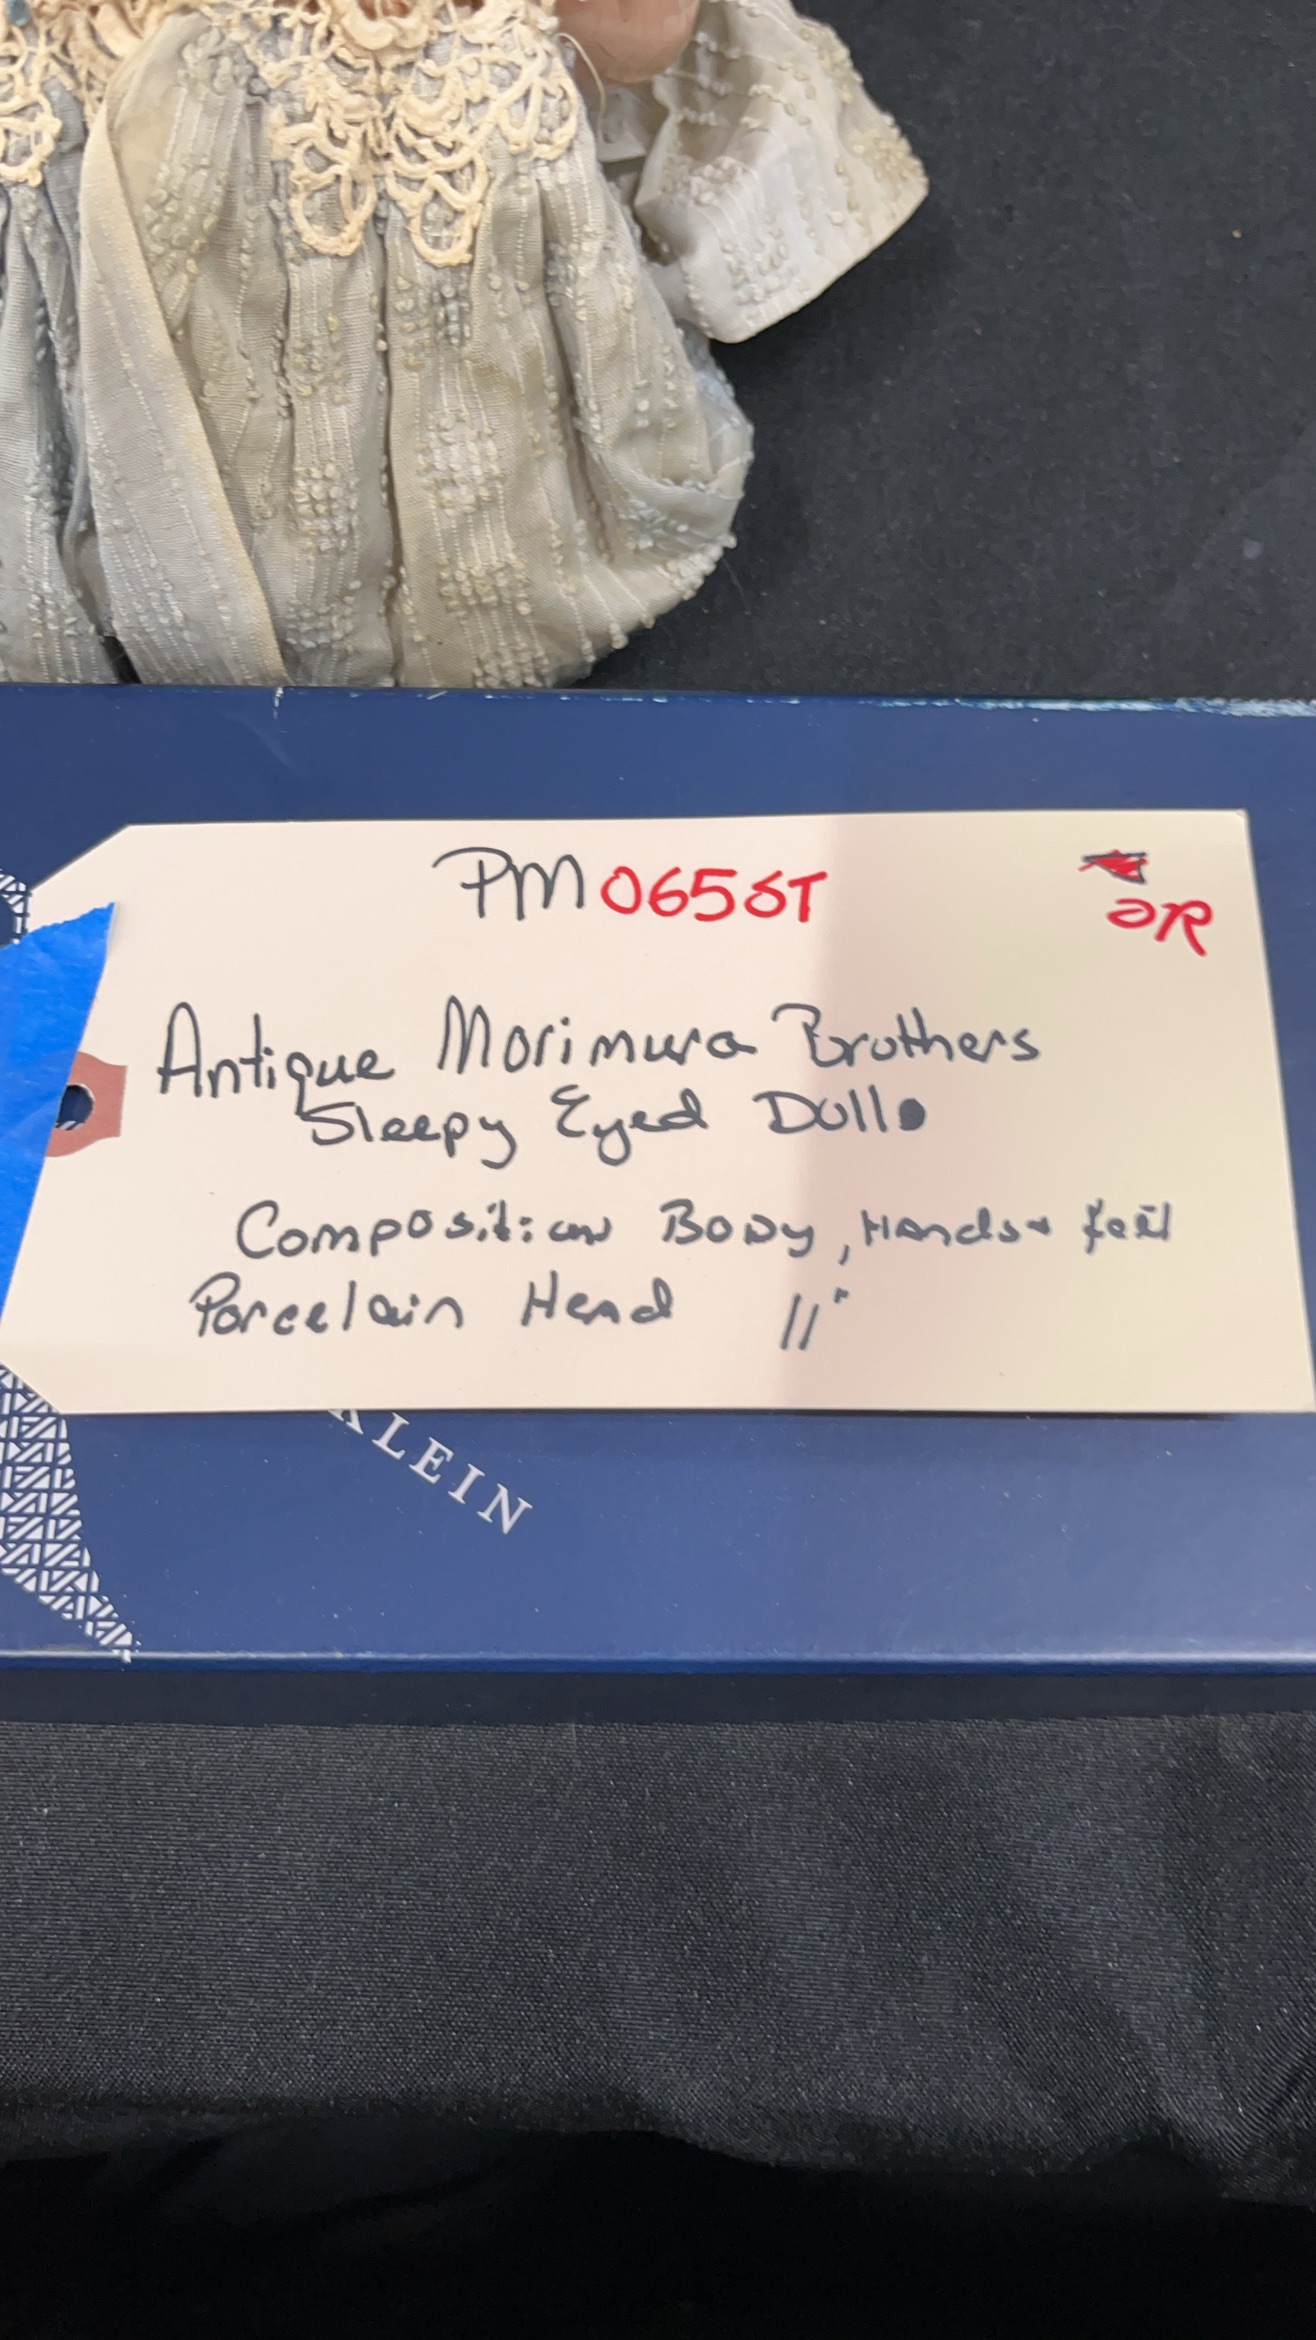 PM 0658T
OR
Antique Morimura Brothers
Sleepy Eyed Doll
Composition Body, Hands + feet
Porcelain Head 11"
KLEIN